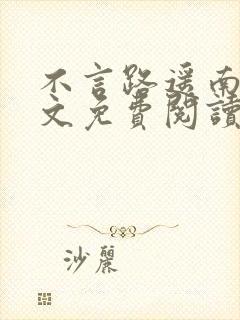 不言路遥南
文免費閱讀
沙麗